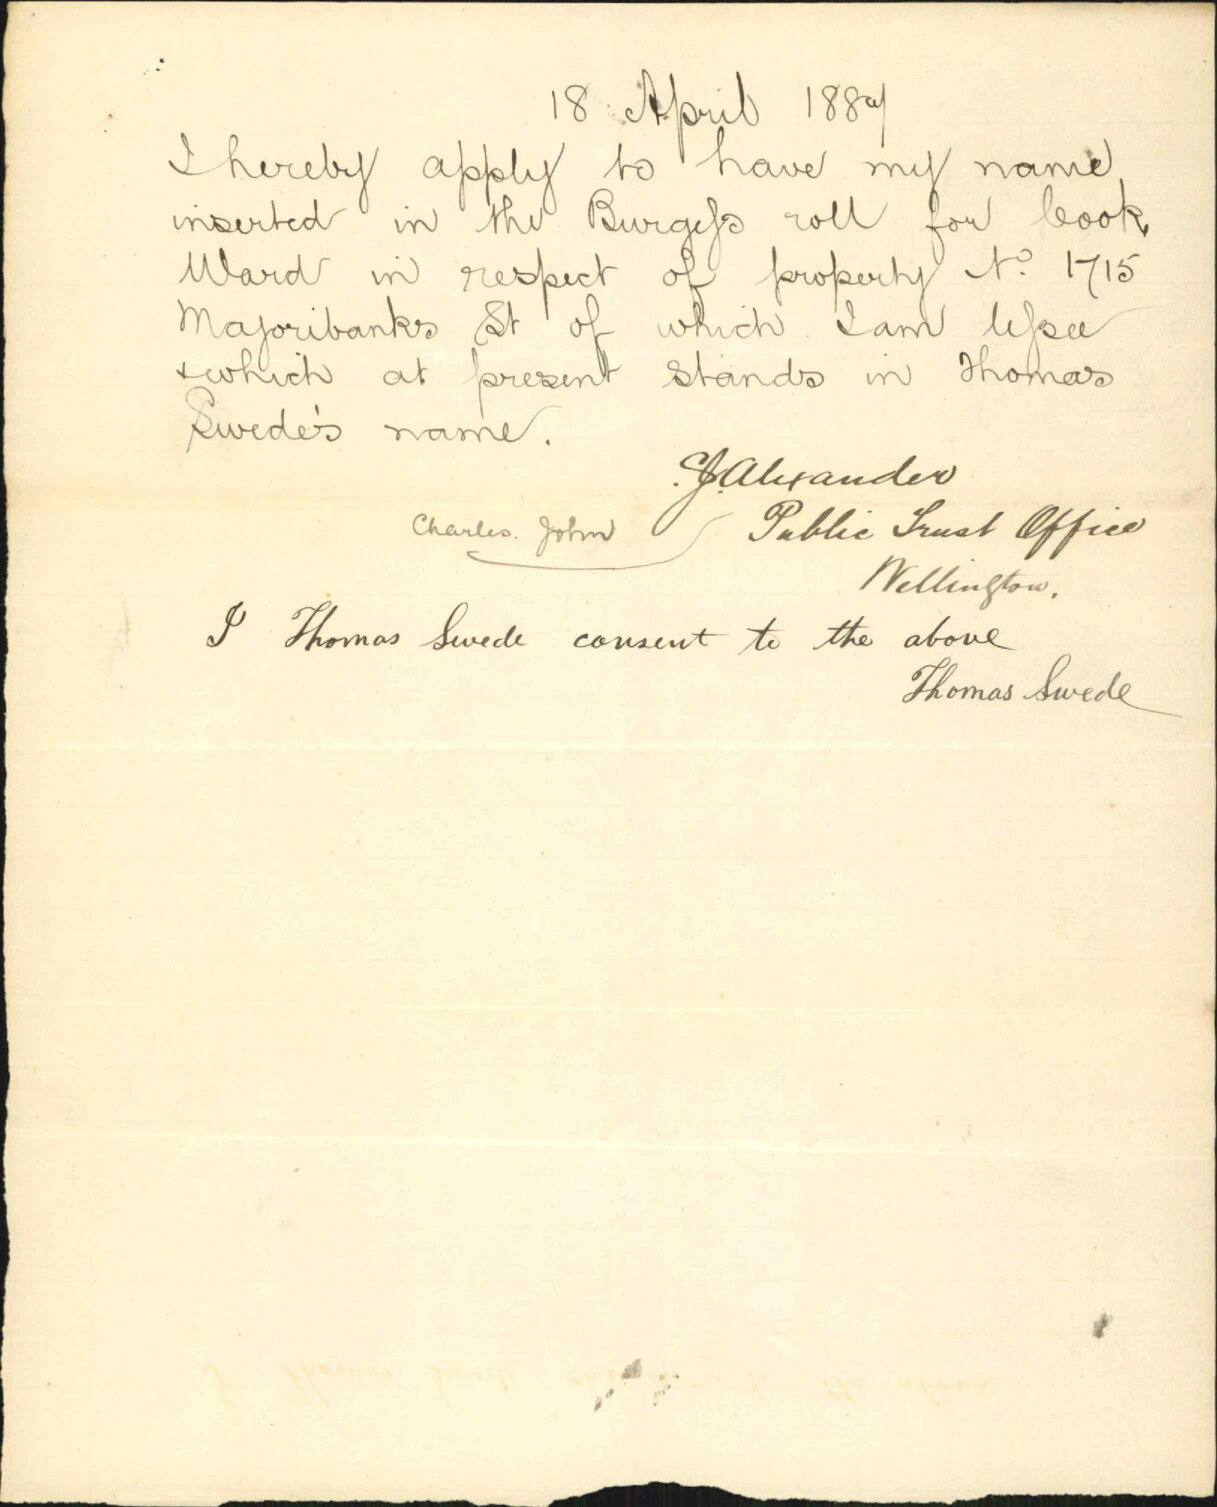 18 April 1889
I hereby apply to have my name
inserted in the Burgess roll for Cook
Ward in respect of property No. 1715
Majoribanks St of which I am lessee
& which at present stands in Thomas
Swede's name.
C.J. Alexander
Charles. John Public Trust Office
Wellington.
I Thomas Swede consent to the above
Thomas Swede